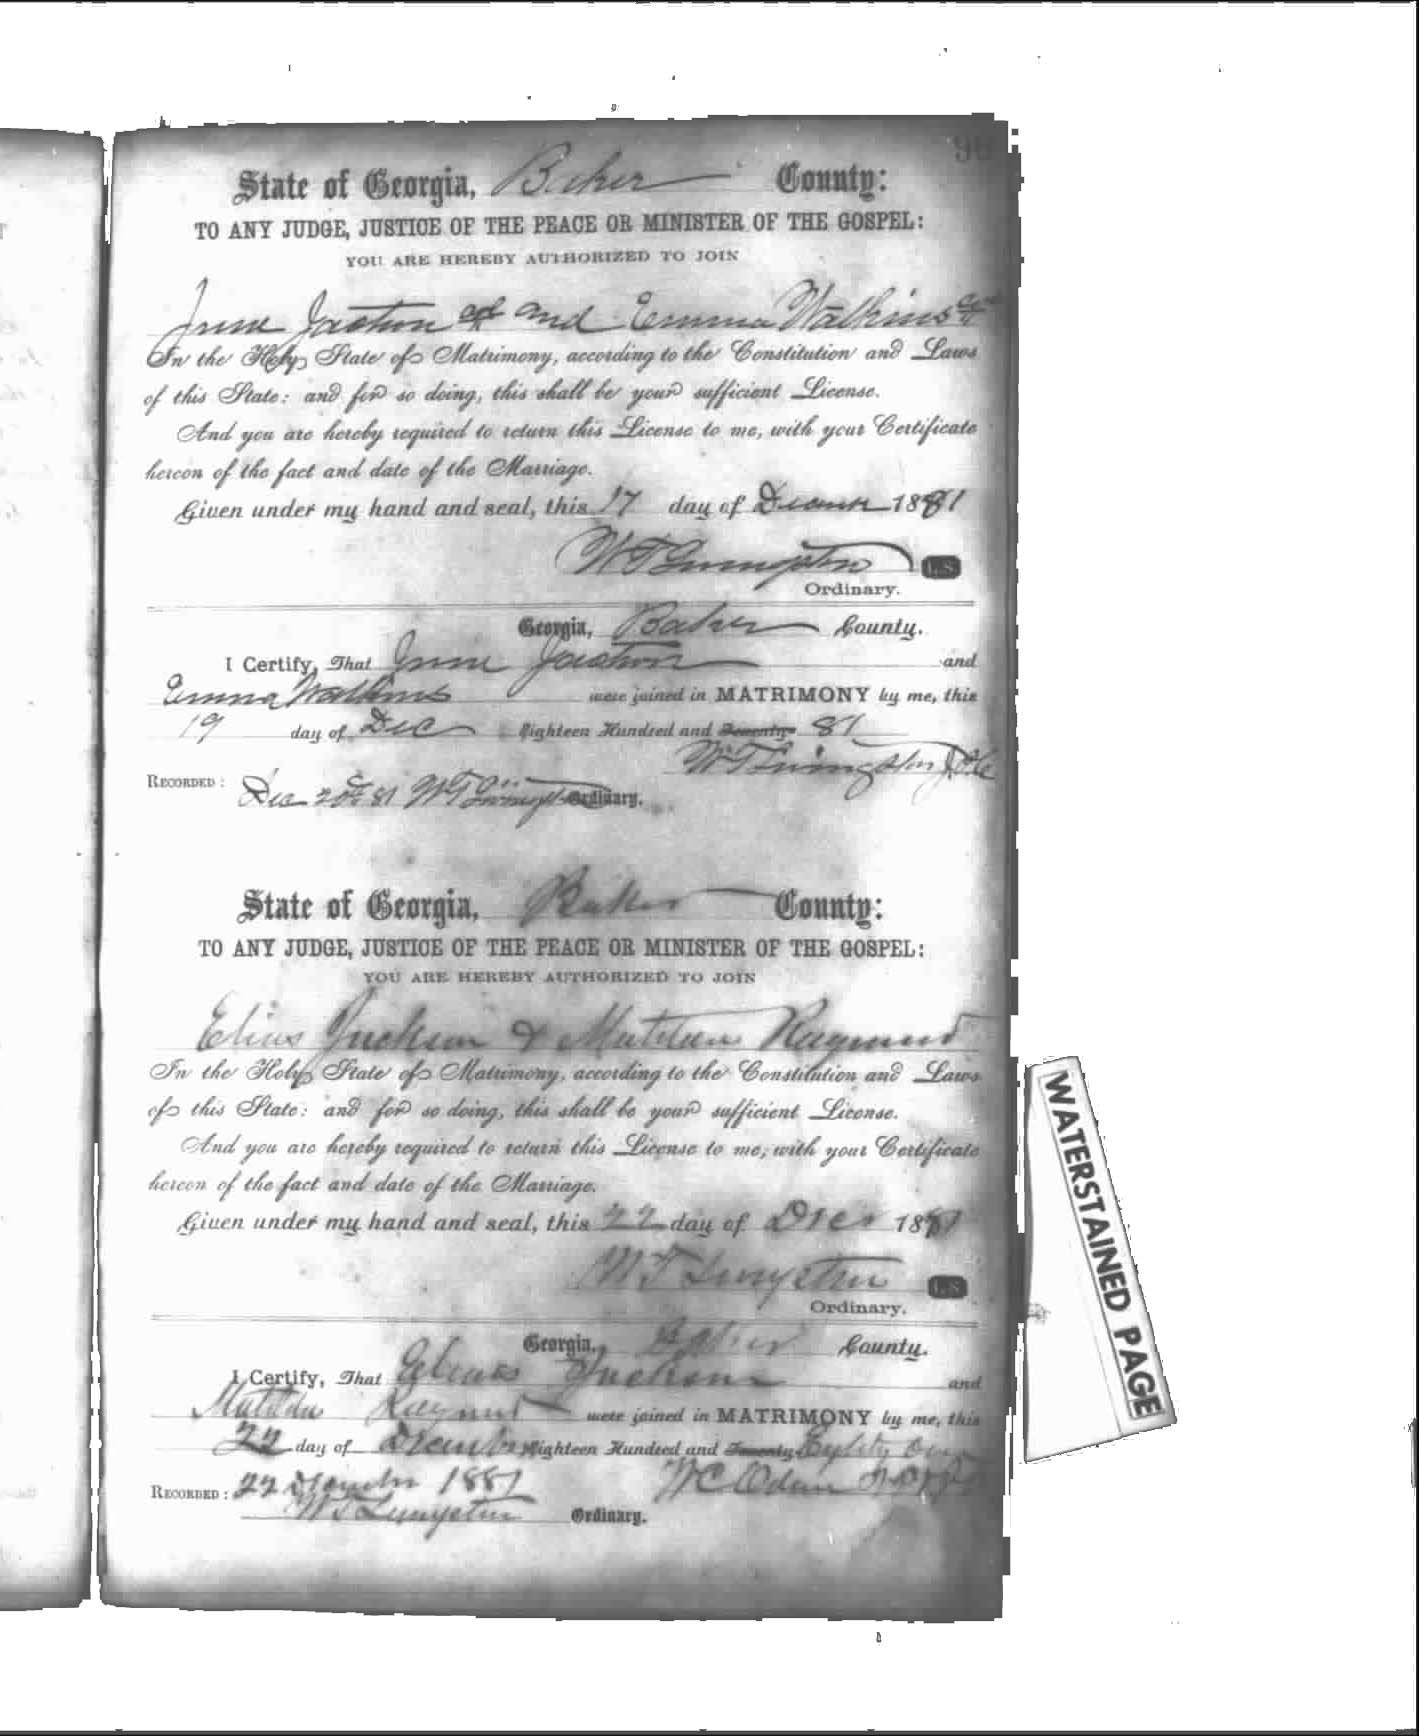 State of Georgia, Baker County:
TO ANY JUDGE, JUSTICE OF THE PEACE OR MINISTER OF THE GOSPEL:
YOU ARE HEREBY AUTHORIZED TO JOIN
Jackson col and Emma Watkins col
In the Holy State of Matrimony, according to the Constitution and Laws
of this State: and for so doing, this shall be your sufficient License.
And you are hereby required to return this License to me, with your Certificate
hereon of the fact and date of the Marriage.
Given under my hand and seal, this 17 day of 1881
W T Livingston L.S.
Ordinary.
Georgia, Baker County.
I Certify, That Jackson and
Emma Watkins were joined in MATRIMONY by me, this
19 day of Dec Eighteen Hundred and Seventy 81
W T Livingston
RECORDED: Dec 20 81 W T Livingston Ordinary.
State of Georgia, Baker County:
TO ANY JUDGE, JUSTICE OF THE PEACE OR MINISTER OF THE GOSPEL:
YOU ARE HEREBY AUTHORIZED TO JOIN
Elias Jackson & Matilda Raymond
In the Holy State of Matrimony, according to the Constitution and Laws
of this State: and for so doing, this shall be your sufficient License.
And you are hereby required to return this License to me, with your Certificate
hereon of the fact and date of the Marriage.
Given under my hand and seal, this 22 day of Dec 1881
W T Livingston L.S.
Ordinary.
Georgia, Baker County.
I Certify, That Elias Jackson and
Matilda were joined in MATRIMONY by me, this
22 day of Eighteen Hundred and Seventy Eighty One
W C Odum
RECORDED: 22 December 1881
W T Livingston Ordinary.
WATERSTAINED PAGE